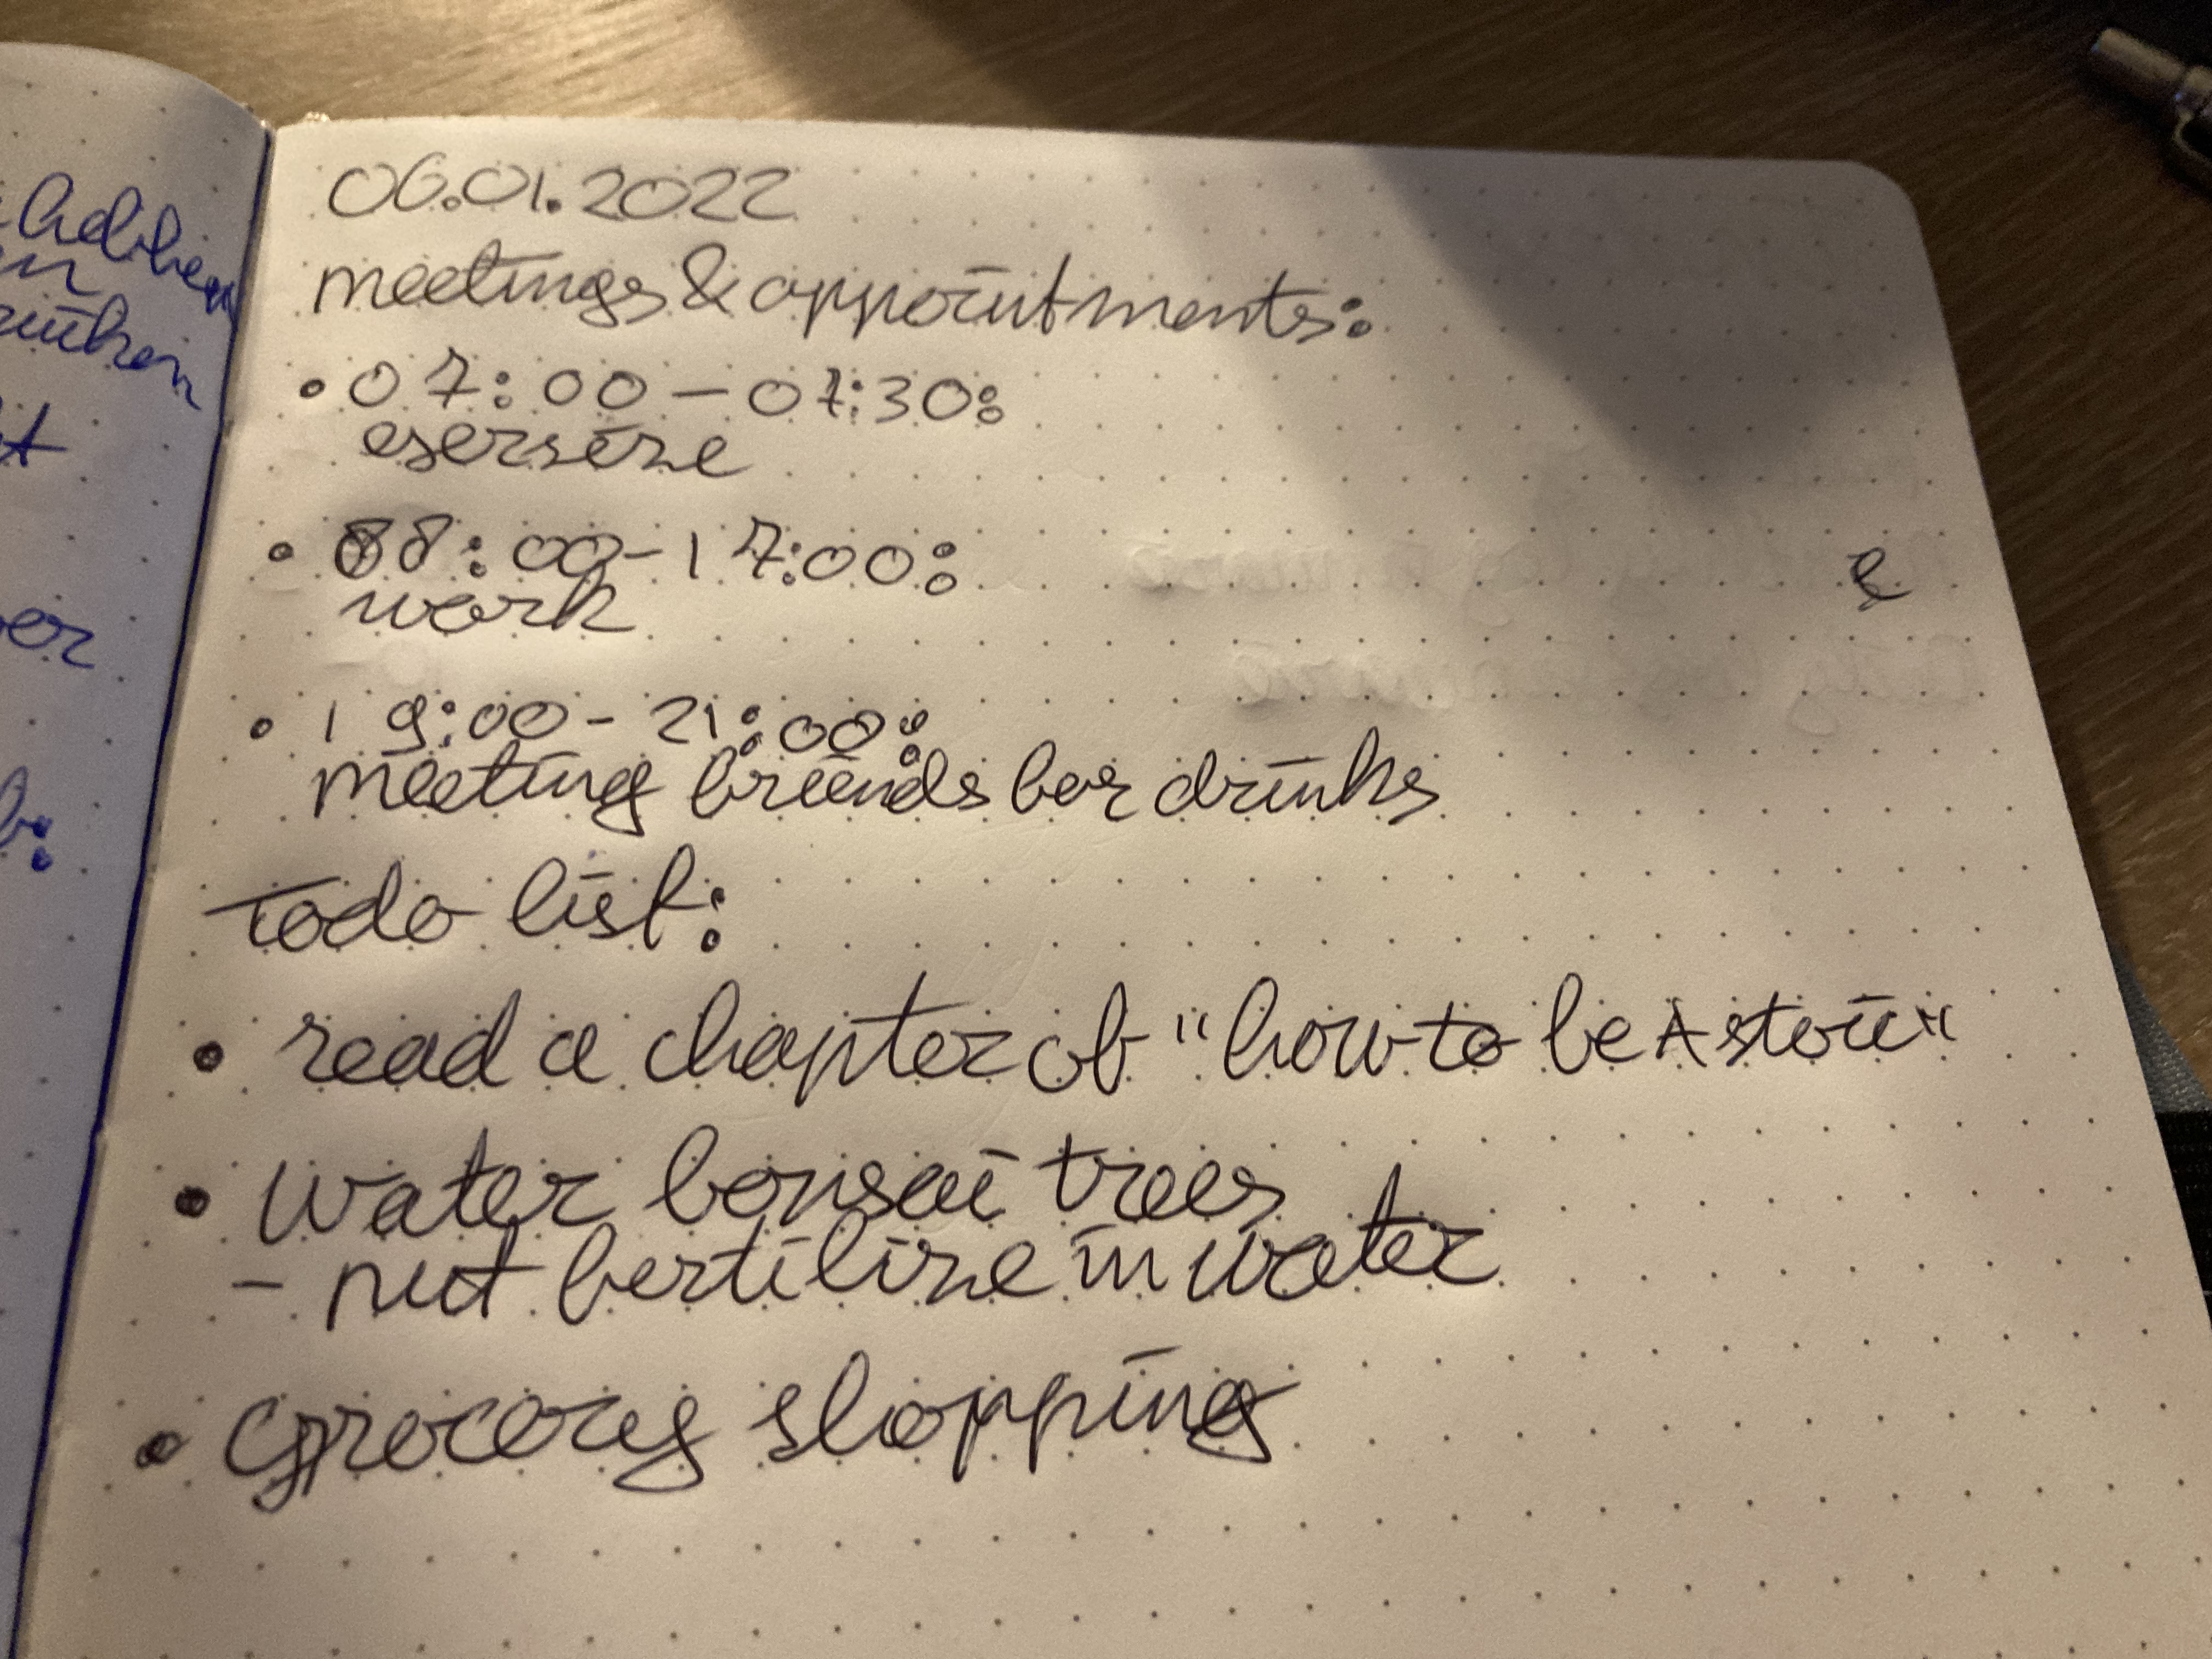 06.01.2022
meetings & appointments:
• 07:00 – 07:30:
exersize
• 08:00 - 17:00:
work
• 19:00 - 21:00:
meeting friends for drinks
Todo list:
• read a chapter of "how to be A stoic"
• water bonsai trees
- put fertilize in water
• Grocery shopping